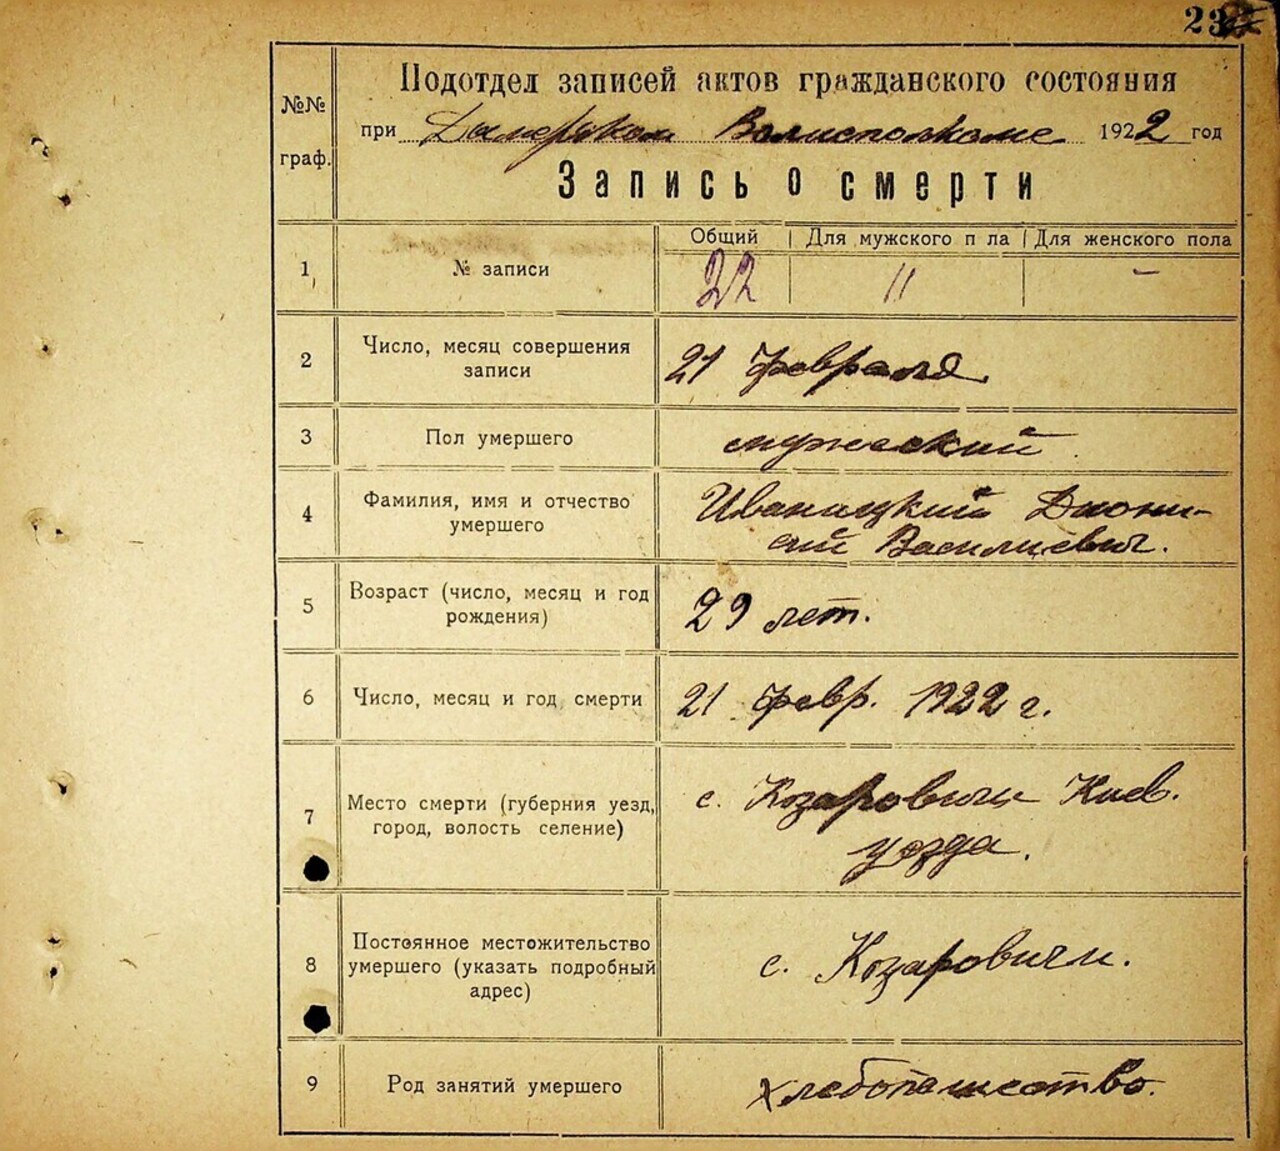 23
№№ граф.
Подотдел записей актов гражданского состояния
при Дымерском Волисполкоме 1922 год
Запись о смерти
Общий | Для мужского п ла | Для женского пола
1 № записи 22 11 –
2 Число, месяц совершения записи 21 февраля.
3 Пол умершего мужеский
4 Фамилия, имя и отчество умершего Иваницкий Диони-
сий Василиевич.
5 Возраст (число, месяц и год рождения) 29 лет.
6 Число, месяц и год смерти 21 февр. 1922 г.
7 Место смерти (губерния уезд, город, волость селение) с. Козаровичи Киев.
уезда.
8 Постоянное местожительство умершего (указать подробный адрес) с. Козаровичи.
9 Род занятий умершего хлебопашество.